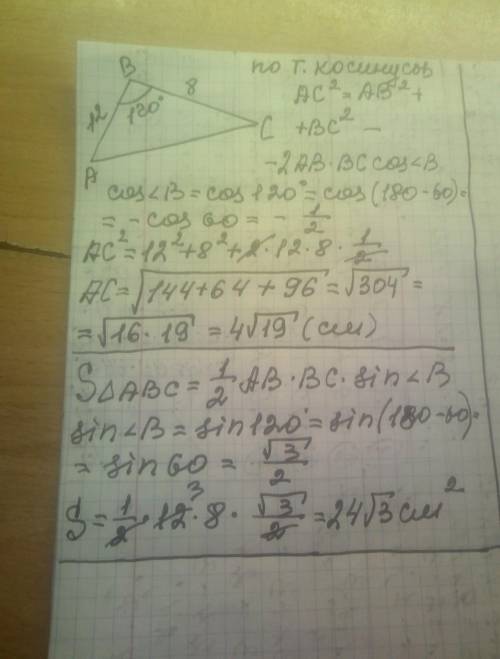 B
8
12
120°
A
C
по т. косинусов
AC² = AB² +
+ BC² −
− 2AB · BC cos∠B
cos∠B = cos 120° = cos(180 − 60) =
= − cos 60 = − 1/2
AC² = 12² + 8² + 2 · 12 · 8 · 1/2
AC = √(144 + 64 + 96) = √304 =
= √(16 · 19) = 4√19 (см)
S△ABC = 1/2 AB · BC · sin∠B
sin∠B = sin 120° = sin(180 − 60) =
= sin 60 = √3/2
S = 1/2 · 12³ · 8 · √3/2 = 24√3 см²